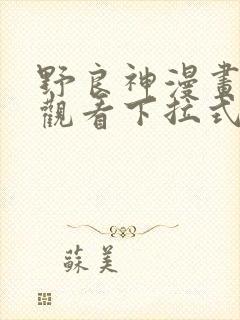 野良神漫畫
觀看下拉式
蘇美